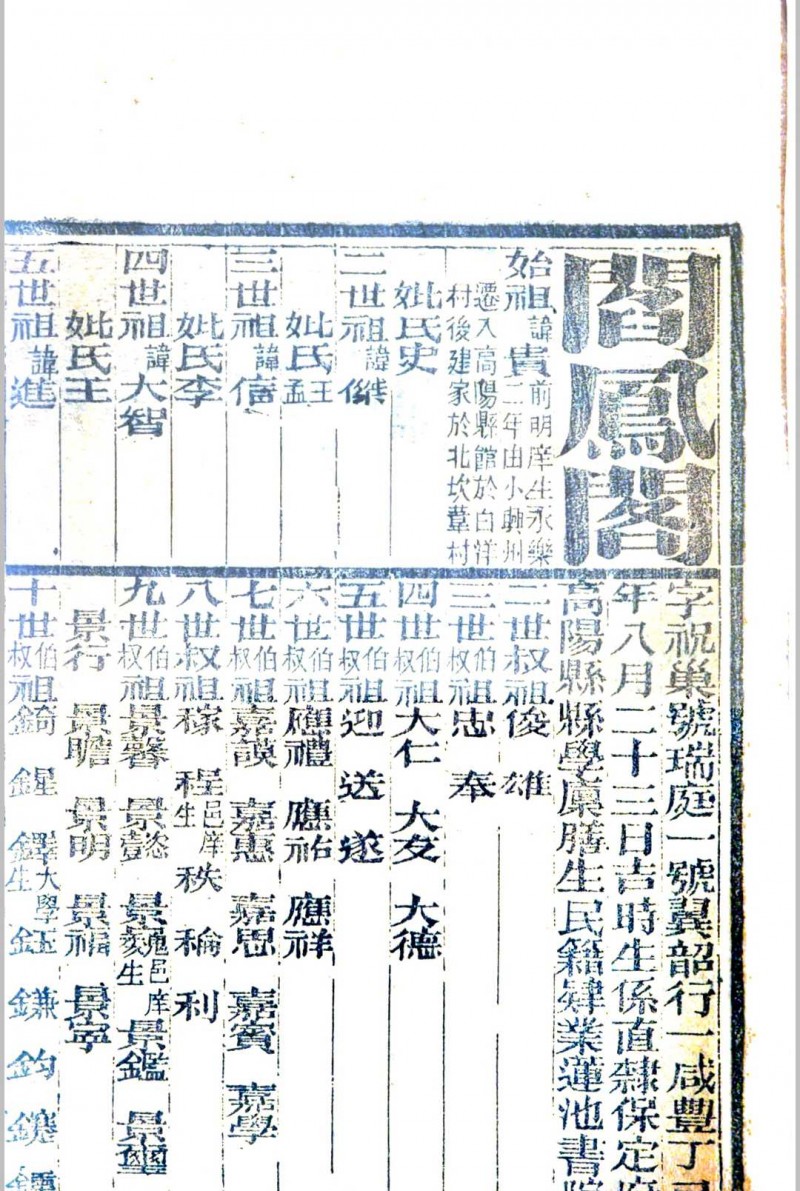 閻鳳閣
字祝巢號瑞庭一號翼韶行一咸豐丁巳
年八月二十三日吉時生係直隸保定府
高陽縣縣學廩膳生民籍肄業蓮池書院
始祖諱貴前明庠生永樂二年由小興州
遷入高陽縣館於白洋村後建家於北坎葦村
妣氏史
二世祖諱傑
妣氏王孟
三世祖諱倍
妣氏李
四世祖諱大智
妣氏王
五世祖諱進
二世叔祖俊 雄
三世伯叔祖忠 奉
四世伯叔祖大仁 大友 大德
五世伯叔祖迎 送 遂
六世伯叔祖應禮 應祐 應祥
七世伯叔祖嘉謨 嘉惠 嘉思 嘉賓 嘉學
八世叔祖稼 程邑庠生 秩 稐 利
九世伯叔祖景馨 景懿 景邑庠生 景鑑 景璽
景行 景瞻 景明 景福 景寧
十世伯叔祖錡 鍟 鐸大學生 鈺 鎌 鈞 鑣